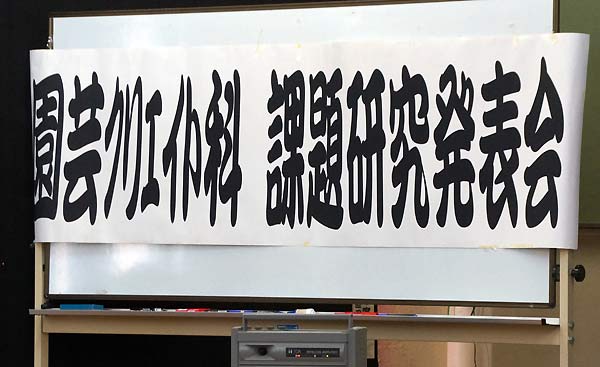 園芸クリエイト科 課題研究発表会
TOA